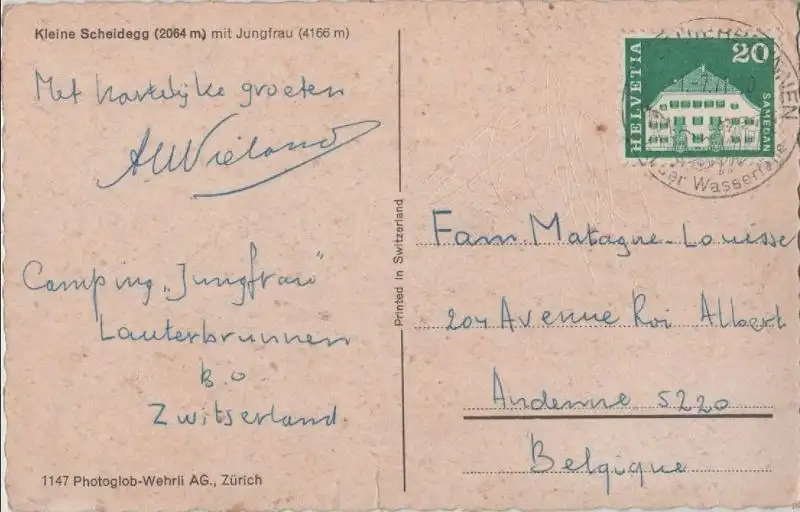 Kleine Scheidegg (2064 m) mit Jungfrau (4166 m)
Met hartelijke groeten
AWieland
Camping "Jungfrau"
Lauterbrunnen
B.O
Zwitserland
1147 Photoglob-Wehrli AG., Zürich
Printed in Switzerland
HELVETIA
20
SAMEDAN
Wasserfälle
Fam. Matagne-Louisse
204 Avenue Roi Albert
Andenne 5220
Belgique